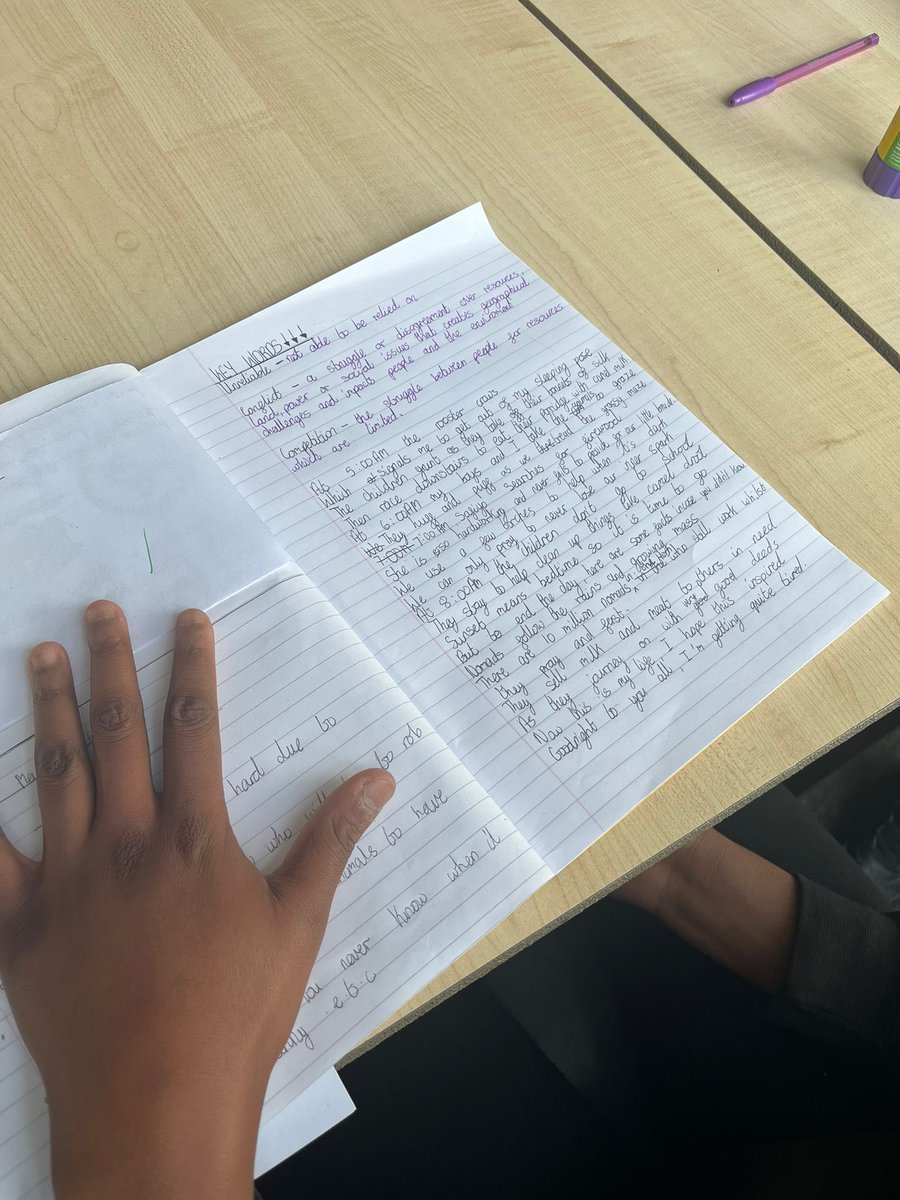 KEY WORDS↓↓↓
Unreliable - not able to be relied on
Conflict - a struggle or disagreement over resources,
land, power or social issues that creates geographical
challenges and inpacts people and the enviroment
Competition - the struggle between people for resources
which are limited.
At 5:00AM the rooster caws
Which signals me to get out of my sleeping pose
The children yawns as they take off their bonnets of silk
Then race downstairs to eat their porridge with camel milk
At 6:00AM my boys and I take the animals to graze
They huff and puff as we the grassy maze
7:00AM Safiya searches for firewood
She is also hardworking and never fails to proud of our little
We use a few torches to help when it's dark
We can only pray to never lose our spark
At 8:00AM the children don't go to school
They stay to help clean up things like camel drool
Sunset means bedtime so it is time to go
But to end the day, here are some facts incase you didn't know
Nomads follow the rains and growing mass
There are 10 million nomads in the who still work whilst
they pray and fast.
They sell milk and meat to others in need
As they journey on with very good deeds
Now this is my life, I hope this inspired
Goodnight to you all, I'm getting quite tired.
hard due to
who will to rob
to have
you never Know when it
e.t.c